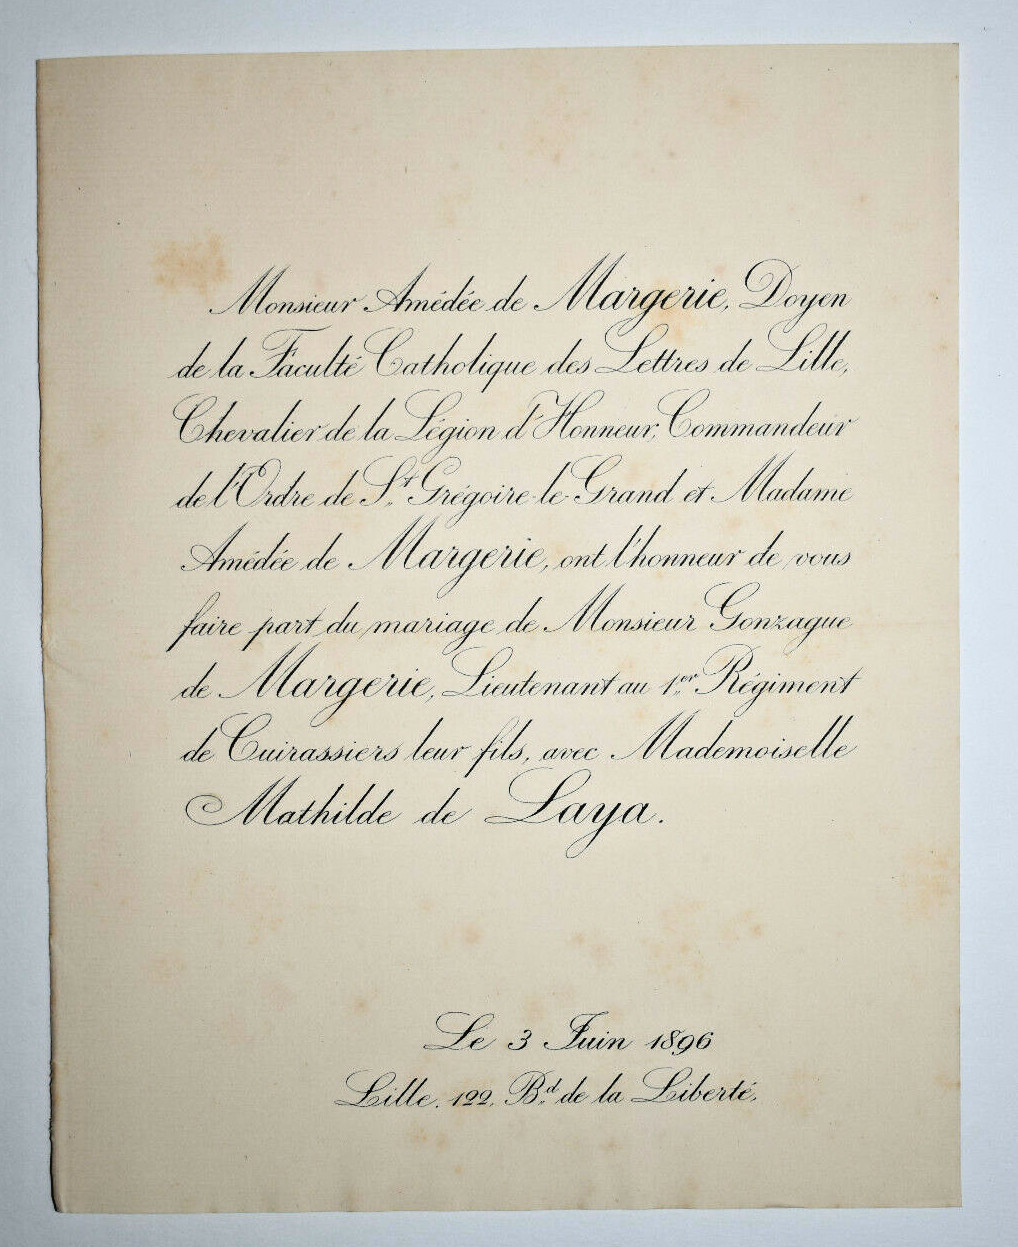 Monsieur Amédée de Margerie, Doyen
de la Faculté Catholique des Lettres de Lille,
Chevalier de la Légion d'Honneur, Commandeur
de l'Ordre de St. Grégoire-le-Grand et Madame
Amédée de Margerie, ont l'honneur de vous
faire part du mariage de Monsieur Gonzague
de Margerie, Lieutenant au 1er Régiment
de Cuirassiers leur fils, avec Mademoiselle
Mathilde de Laya.
Le 3 Juin 1896
Lille. 122, Bd. de la Liberté.